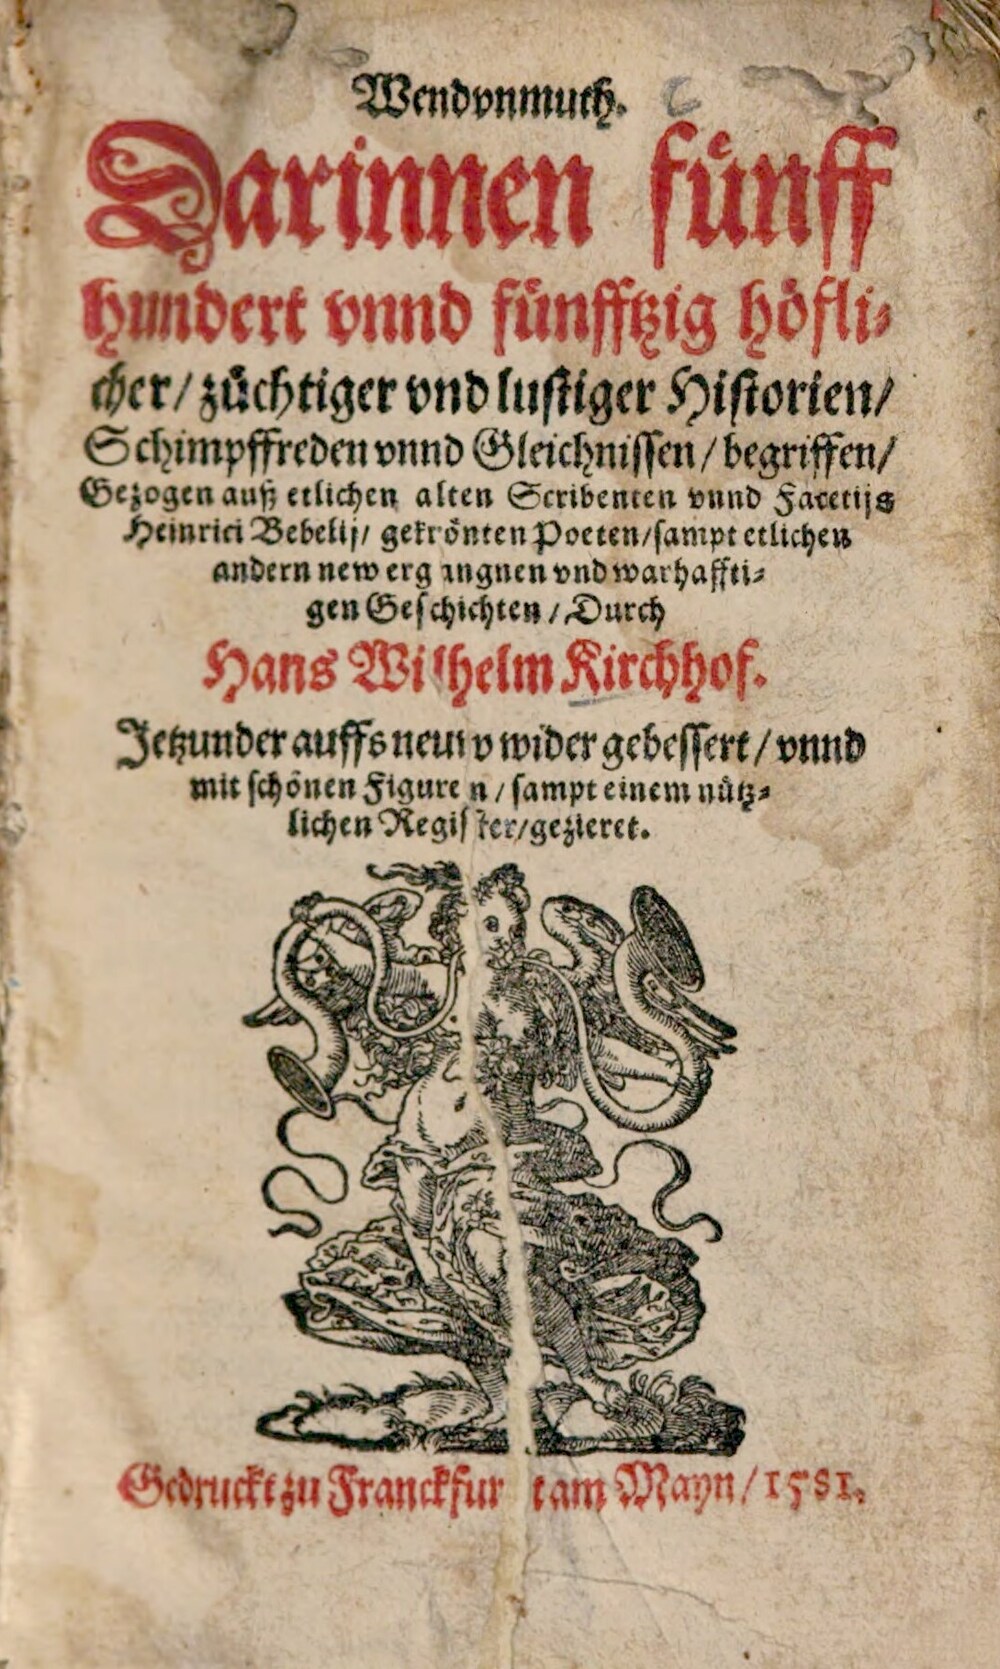 Wendvnmuth.
Darinnen fünff
hundert vnnd fünfftzig höfli⸗
cher/ züchtiger vnd lustiger Historien/
Schimpffreden vnnd Gleichnissen/ begriffen/
Gezogen auß etlichen alten Scribenten vnnd Facetijs
Heinrici Bebelij/ gekrönten Poeten/ sampt etlichen
andern new ergangnen vnd warhaffti⸗
gen Geschichten/ Durch
Hans Wilhelm Kirchhof.
Jetzunder auffs neuw wider gebessert/ vnnd
mit schönen Figuren/ sampt einem nütz⸗
lichen Register/ gezieret.
Gedruckt zu Franckfurt am Mayn/ 1581.